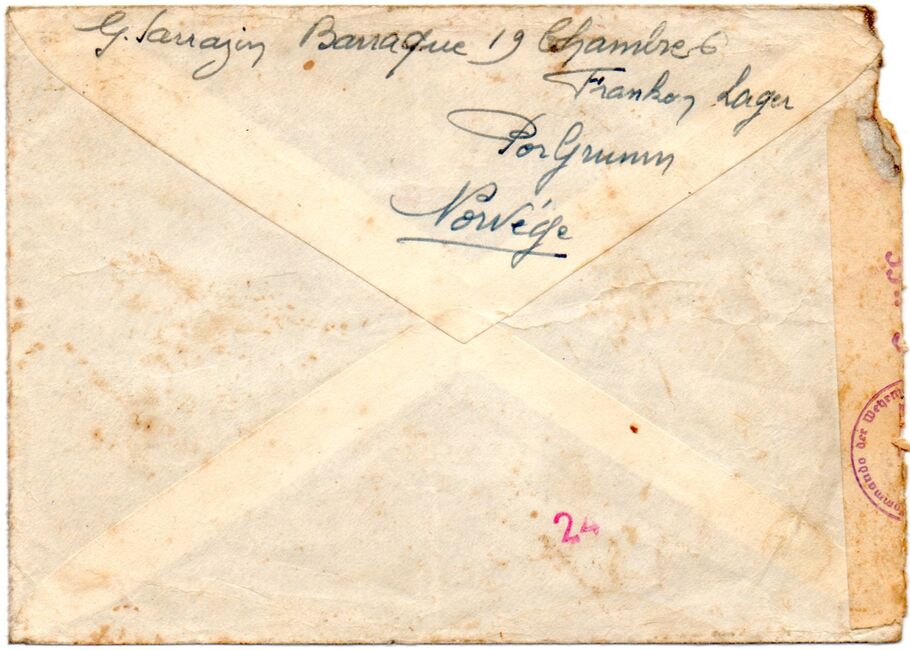 G. Sarrazin Barraque 19 Chambre 6
Frankon Lager
PorGrunn
Norvége
24
ommando der Wehrm